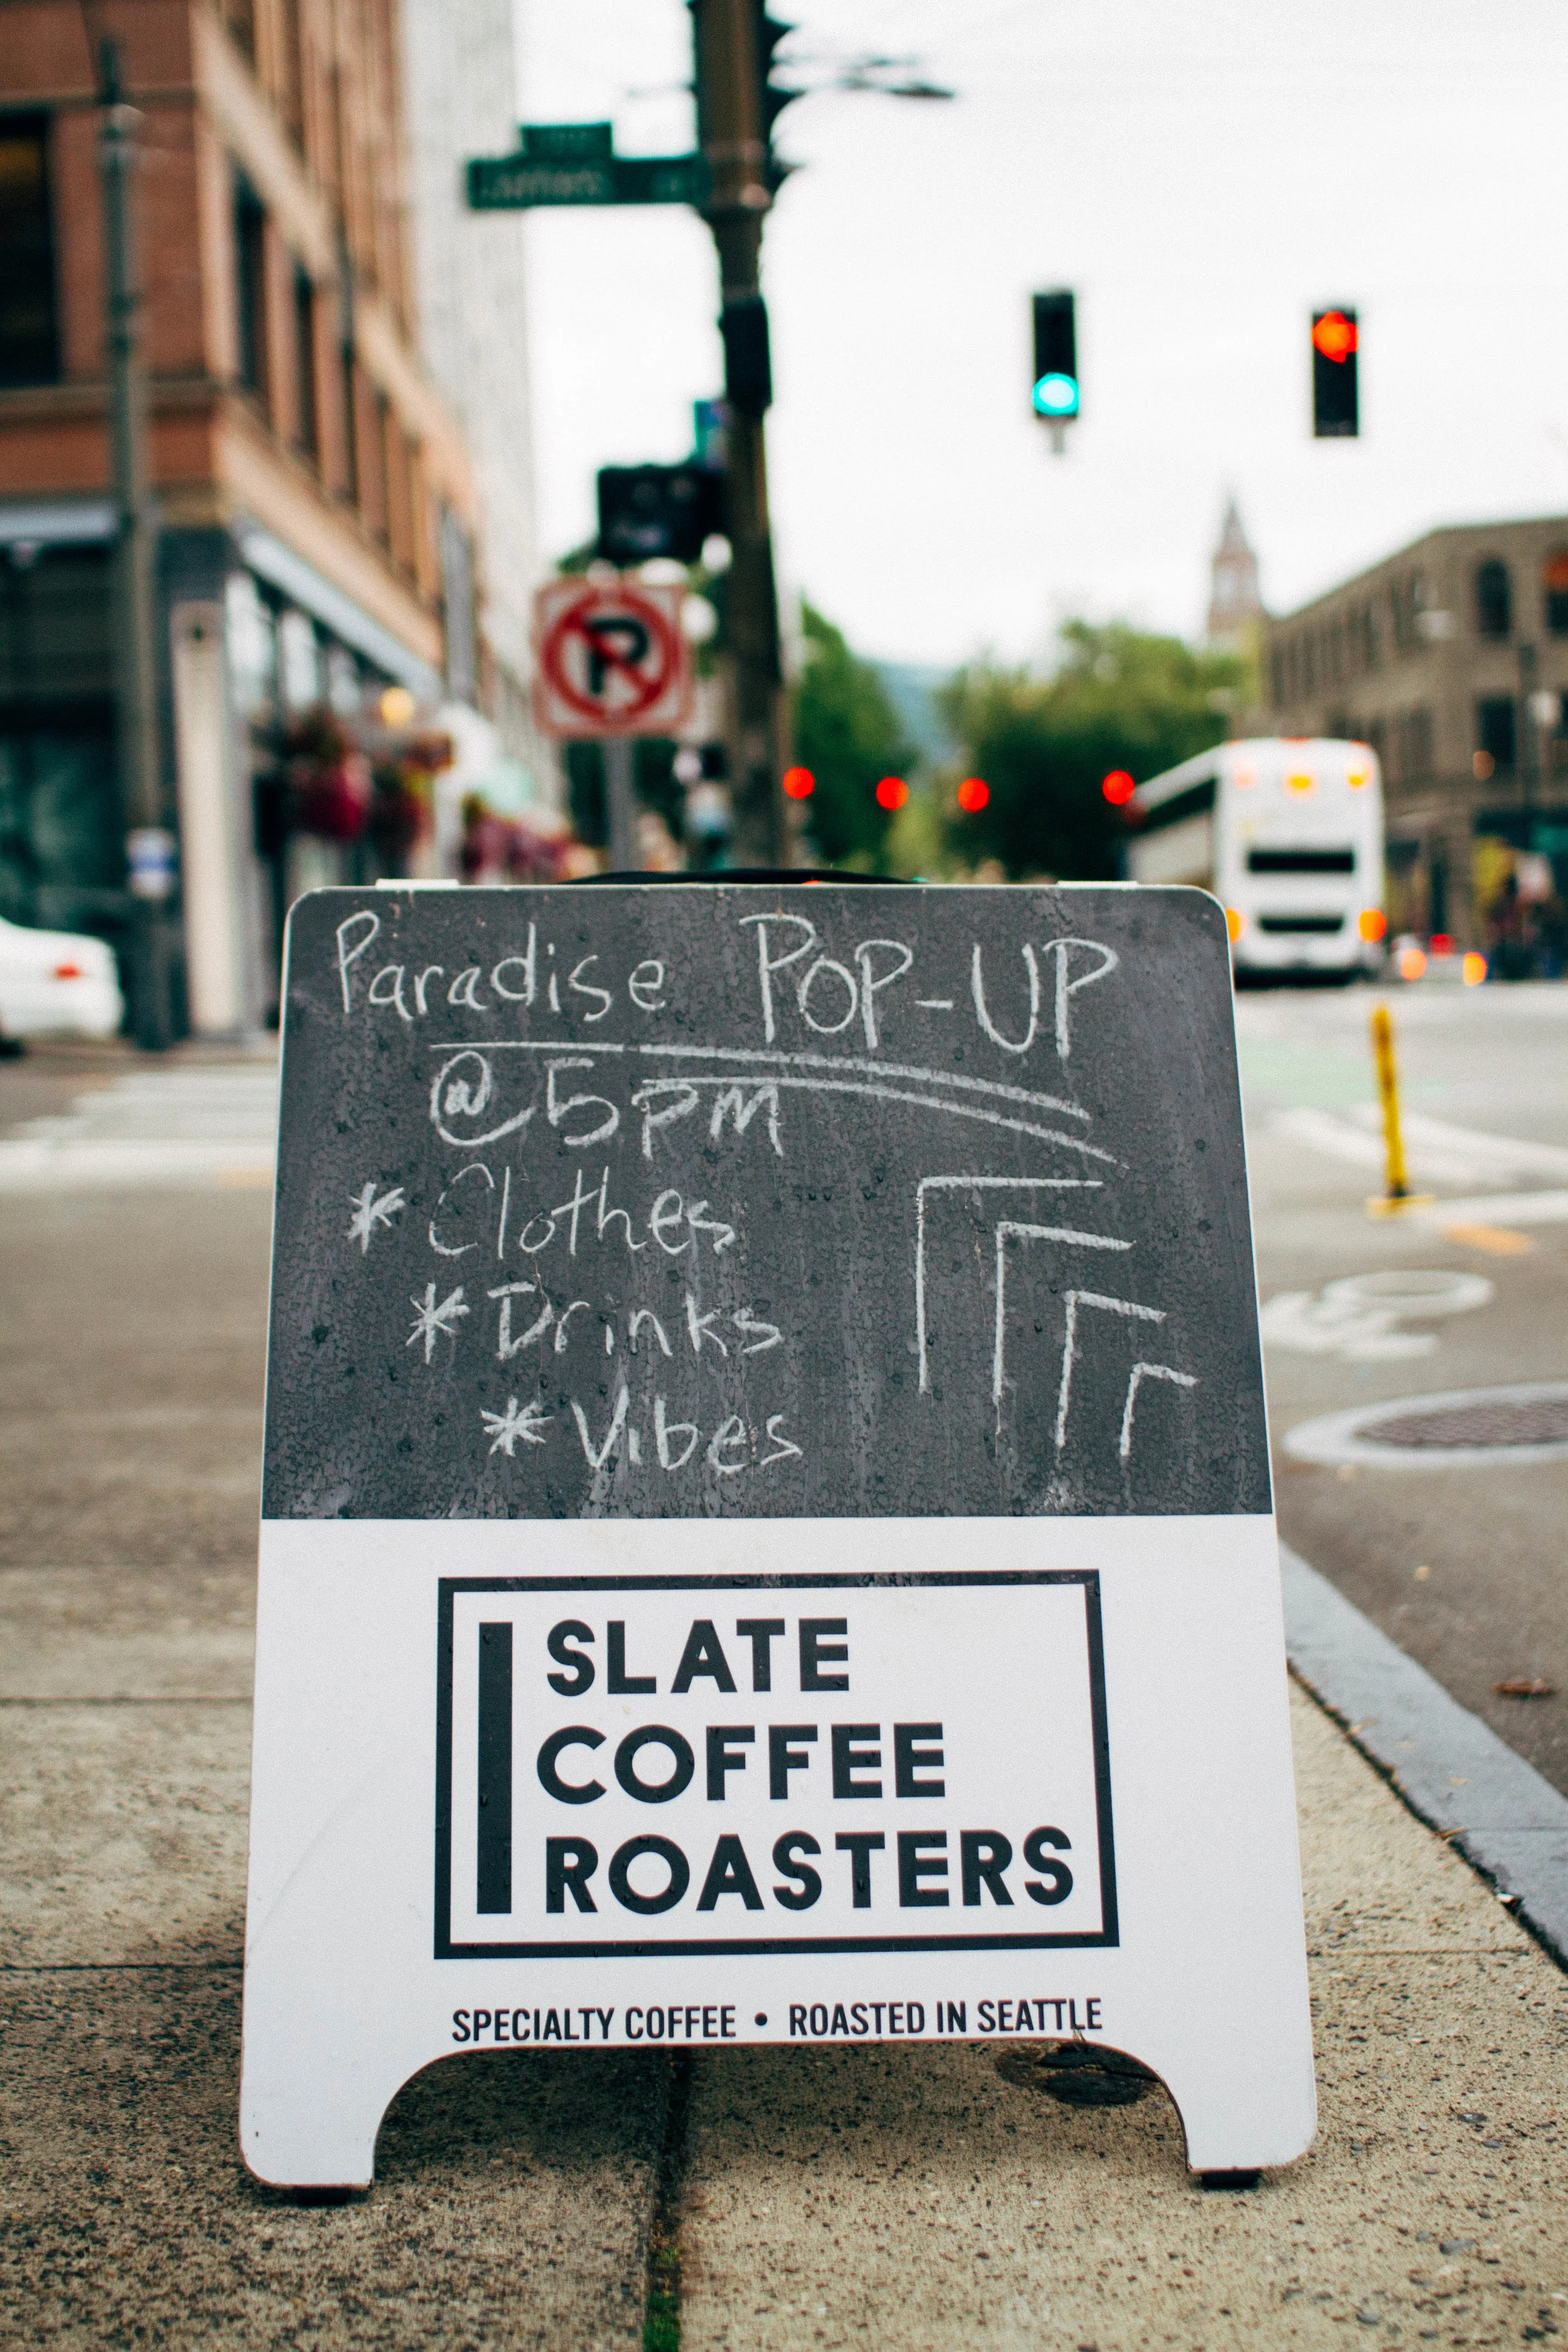 P
Paradise POP-UP
@ 5PM
* Clothes
* Drinks
* Vibes
SLATE
COFFEE
ROASTERS
SPECIALTY COFFEE • ROASTED IN SEATTLE